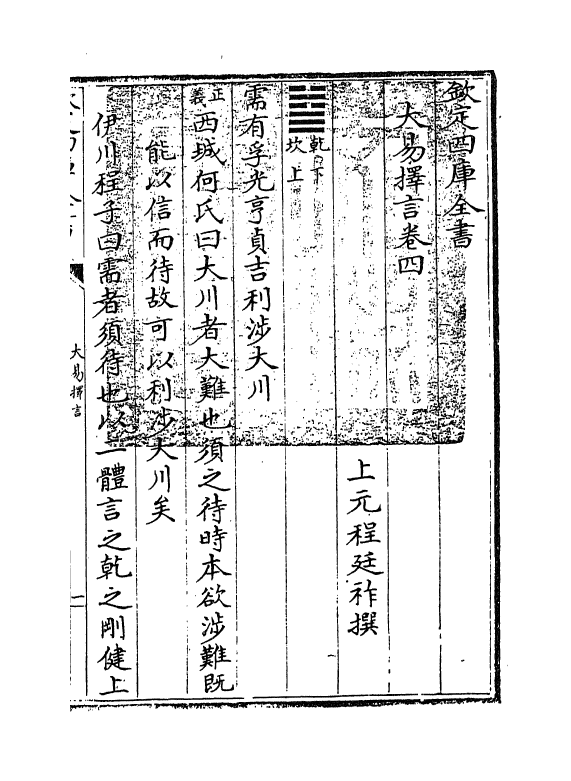 欽定四庫全書
大易擇言卷四
上元程廷祚撰
䷄
乾下
坎上
需有孚光亨貞吉利涉大川
正義
西城何氏曰大川者大難也須之待時本欲涉難既
能以信而待故可以利涉大川矣
伊川程子曰需者須待也以二體言之乾之剛健上
大易擇言
一